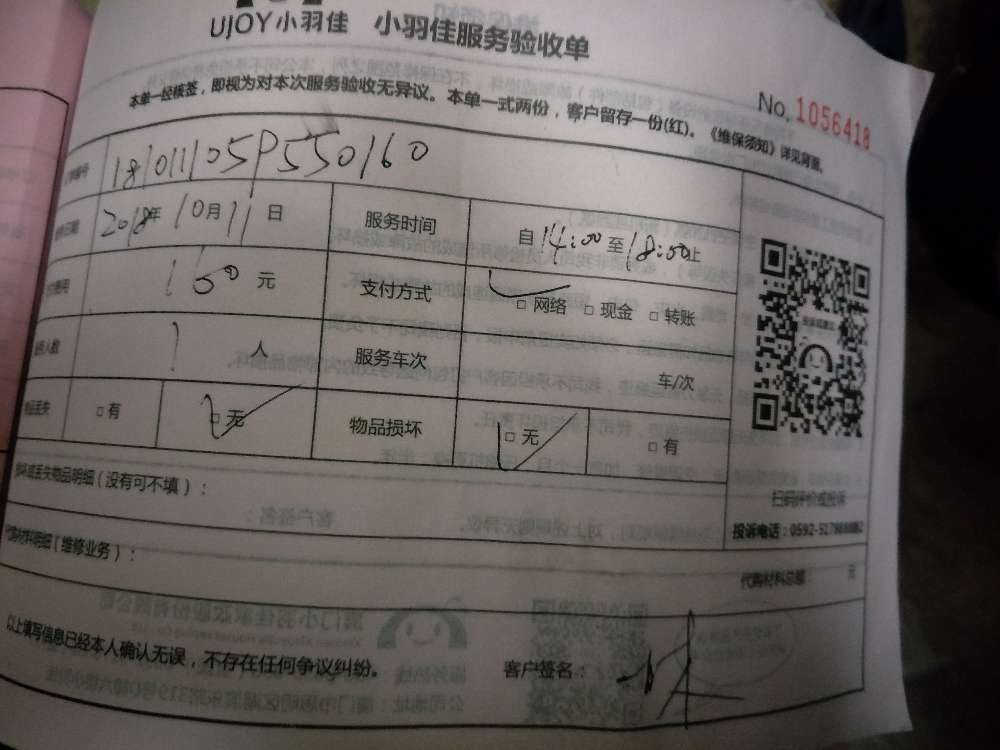 UJOY小羽佳 小羽佳服务验收单
本单一经核签，即视为对本次服务验收无异议。本单一式两份，客户留存一份(红)。《维保须知》详见背面。
No. 1056418
编号 18101105P550160
日期 2018年10月11日 服务时间 自14:00至18:00止
费用 150元 支付方式 □网络 □现金 □转账
人数 1人 服务车次 车/次
物品丢失 □有 □无 物品损坏 □无 □有
损坏或丢失物品明细（没有可不填）：
扫码评价或投诉
投诉电话：0592-5178
材料明细（维修业务）：
代购材料总额： 元
以上填写信息已经本人确认无误，不存在任何争议纠纷。
客户签名：